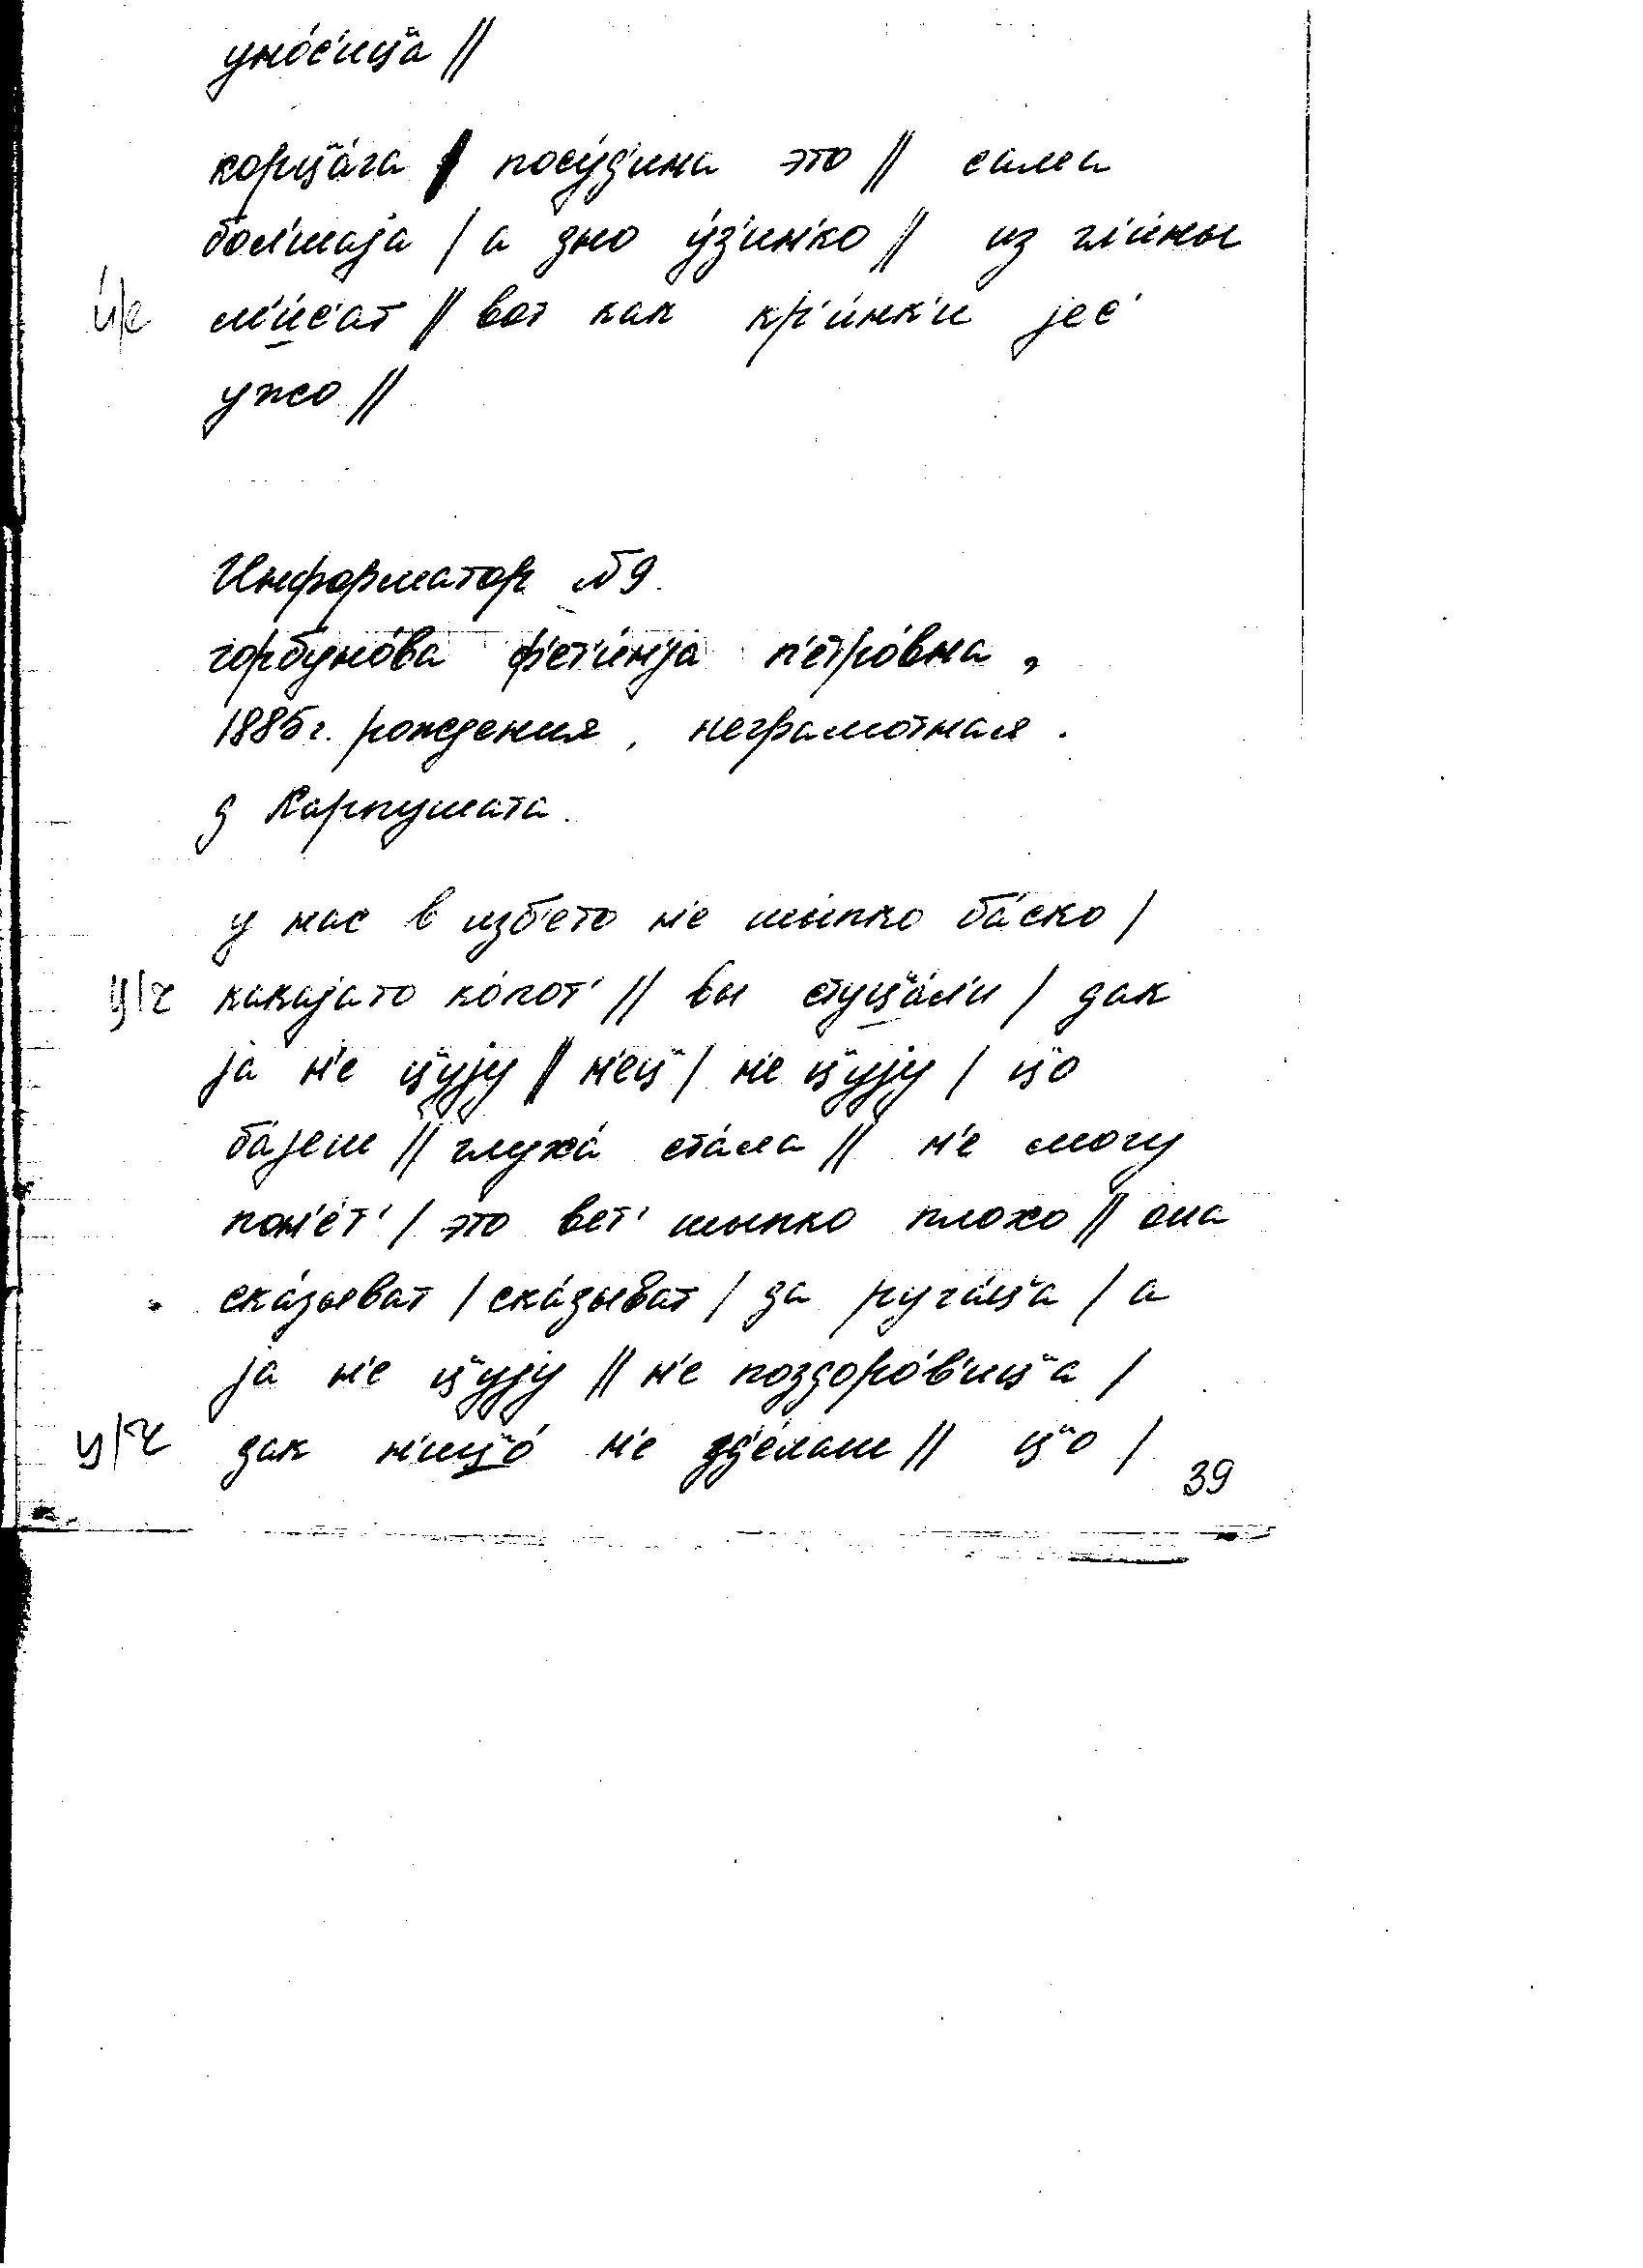 уно́с'иц̈а //
корц̈а́га / посу́д'ина это // сама
бол'шаjа / а дно у́з'ин'ко // из гл'и́ны
и́/е м'и́с'ат // вот как кр'и́нк'и jес'
ужо //
Информатор №9.
горбуно́ва ф'ет'и́н'jа п'етро́вна,
1885г. рождения, неграмотная.
д Карпушата.
у нас в изб'ето н'е шыпко ба́ско /
ц̈/ч какаjато ко́пот' // вы стуц̈а́л'и / дак
jа н'е ц̈уjу // н'ец̈ / н'е ц̈уjу / ц̈о
ба́jеш // глуха́ ста́ла // н'е могу
пон'е́т' / это вет' шыпко плохо // она
ска́зыват / ска́зыват / да руга́ц̈а / а
jа н'е ц̈уjу // н'е поздоро́в'иц̈а /
ц/ч дак н'иц̈о́ н'е зд'е́лаш // ц̈о /
39